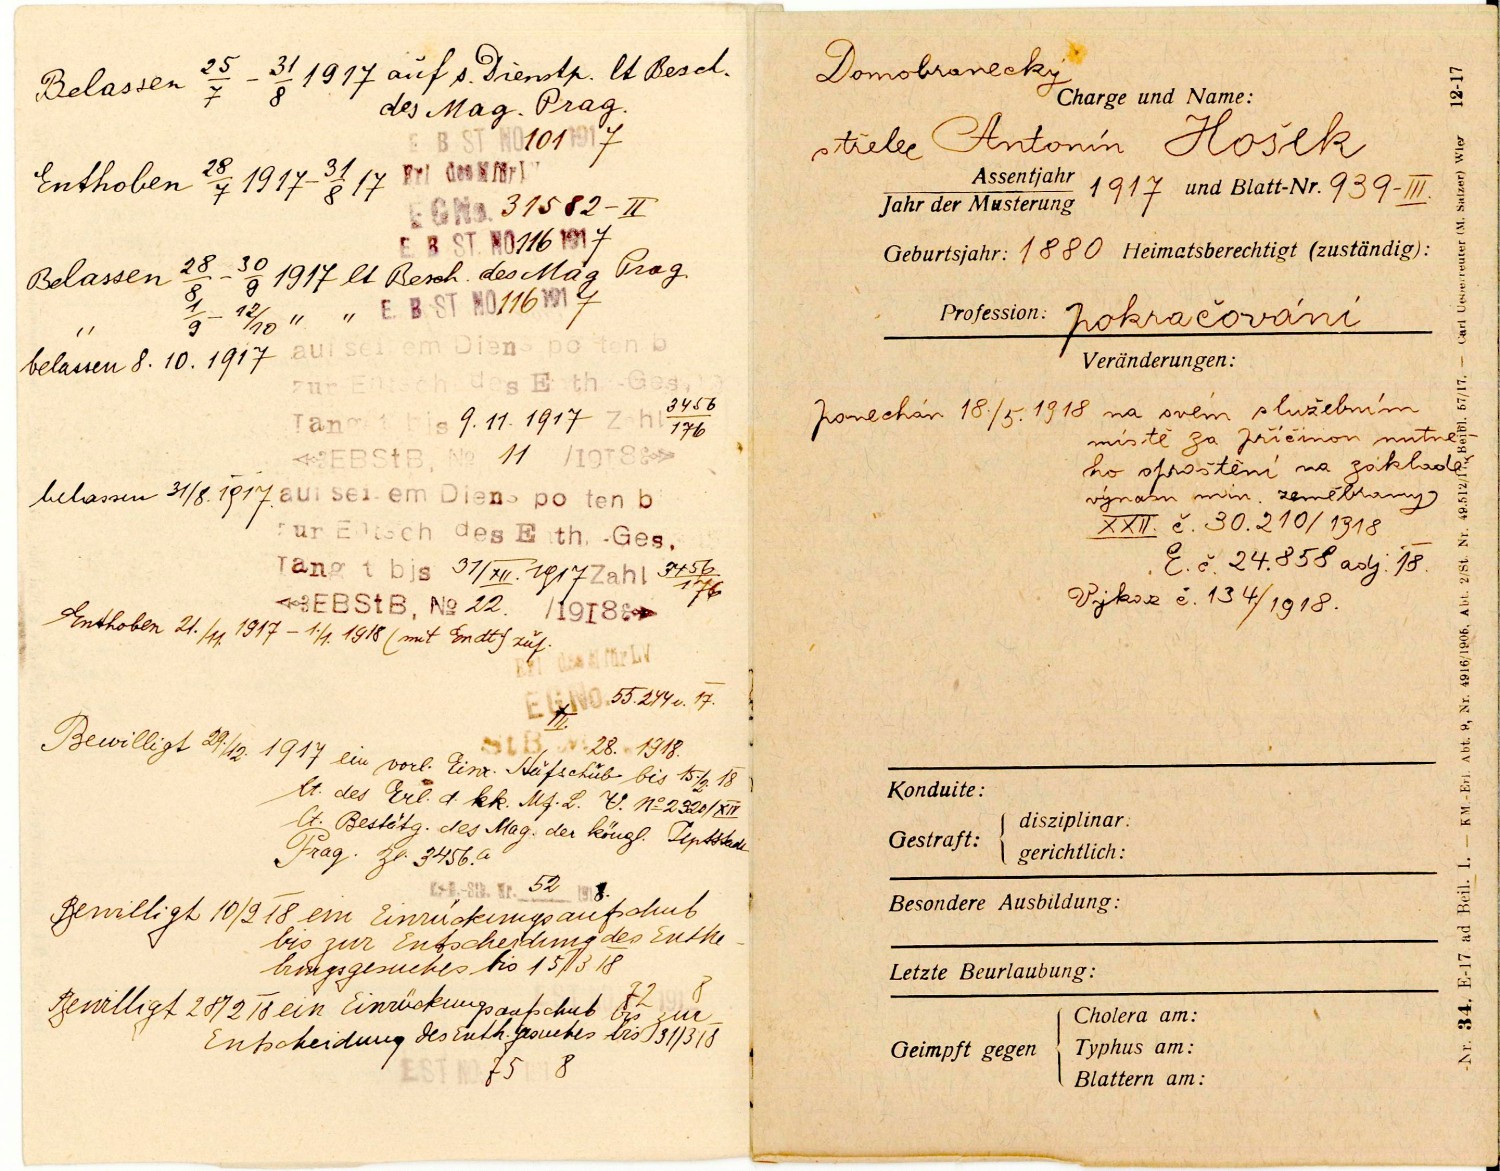 Belassen 25/7 – 31/8 1917 auf s. Dienstp. lt Besch.
des Mag. Prag.
E. B. ST. NO 101 1917
Enthoben 28/7 1917 – 31/8 17 Erl. des M für LV
EGNo. 31582–II
E. B. ST. NO 116 1917
Belassen 28/8 – 30/9 1917 lt Besch. des Mag Prag.
E. B. ST. NO 116 1917
" 1/9 – 12/10 " "
belassen 8. 10. 1917 auf sei em Diens po ten b
zur Entsch des Enth.-Ges,
lang t bis 9. 11. 1917 Zahl 3456/176
EBStB, № 11 /1918
belassen 31/8. 1917. auf sei em Diens po ten b
zur Entsch des Enth.-Ges,
lang t bis 31/XII. 1917 Zahl 3456/176
EBStB, № 22. /1918
Enthoben 21./11. 1917 – 1./1. 1918 (mit
Erl des M für LV
EGNo. 55.244 v. 17.
III.
StB 28. 1918.
Bewilligt 29/12. 1917 ein vorl. Einr. Aufschub bis 15/2 18
lt. des Erl. d. kk. Mf. L. V. № 2320/XII
lt. Bestätg. des Mag. der königl.
Prag. Zl. 3456.a
Nr. 52 1918.
Bewilligt 10/2 18 ein Einrückungsaufschub
bis zur Entscheidung des Enthe-
bungsgesuches bis 15/3 18
72 8
Bewilligt 28/2 18 ein Einrückungsaufschub bis zur
Entscheidung des Enth. gesuches bis 31/3 18
EST NO 75 8
Domobranecký
Charge und Name:
střelec Antonín Hošek
Assentjahr
Jahr der Musterung 1917 und Blatt-Nr. 939–III.
Geburtsjahr: 1880 Heimatsberechtigt (zuständig):
Profession: pokračování
Veränderungen:
ponechán 18./5. 1918 na svém služebním
místě za příčinou nutné-
ho sproštění na základě
výnosu min. zeměbrany
XXII. č. 30.210/1918
E. č. 24.858 adj. 18.
Výkaz č. 134/1918.
Konduite:
Gestraft: disziplinar:
gerichtlich:
Besondere Ausbildung:
Letzte Beurlaubung:
Geimpft gegen Cholera am:
Typhus am:
Blattern am:
Nr. 34. E-17 ad Beil. 1. — KM-Erl. Abt. 9, Nr. 4916/1906, Abt. 2/St. Nr. 49.512/17, Beibl. 57/17. — Carl Ueberreuter (M. Salzer) Wien 12-17